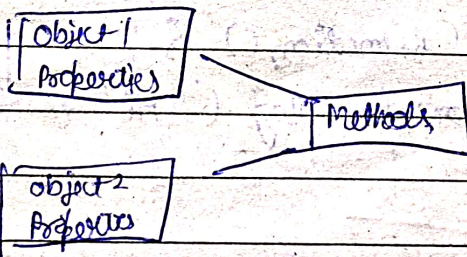 Object 1
Properties
Methods
object 2
Properties